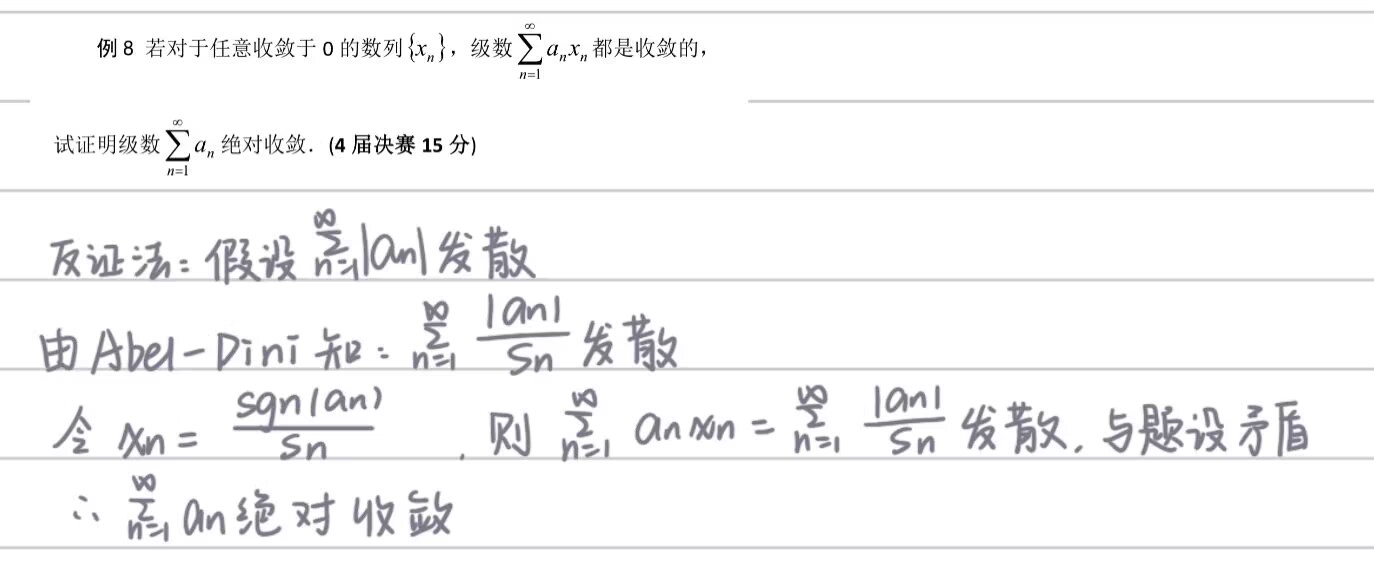 例 8 若对于任意收敛于 0 的数列 {xₙ}，级数 ∑_{n=1}^{∞} aₙxₙ 都是收敛的，
试证明级数 ∑_{n=1}^{∞} aₙ 绝对收敛．(4 届决赛 15 分)
反证法: 假设 ∑_{n=1}^{∞} |an| 发散
由 Abel-Dini 知: ∑_{n=1}^{∞} |an|/Sn 发散
令 xn = sgn(an)/Sn , 则 ∑_{n=1}^{∞} an xn = ∑_{n=1}^{∞} |an|/Sn 发散, 与题设矛盾
∴ ∑_{n=1}^{∞} an 绝对收敛